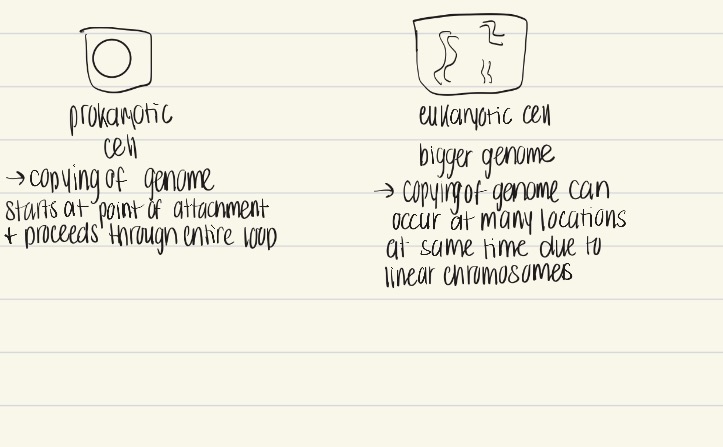 prokaryotic
cell
→ copying of genome
starts at point of attachment
+ proceeds through entire loop
eukaryotic cell
bigger genome
→ copying of genome can
occur at many locations
at same time due to
linear chromosomes